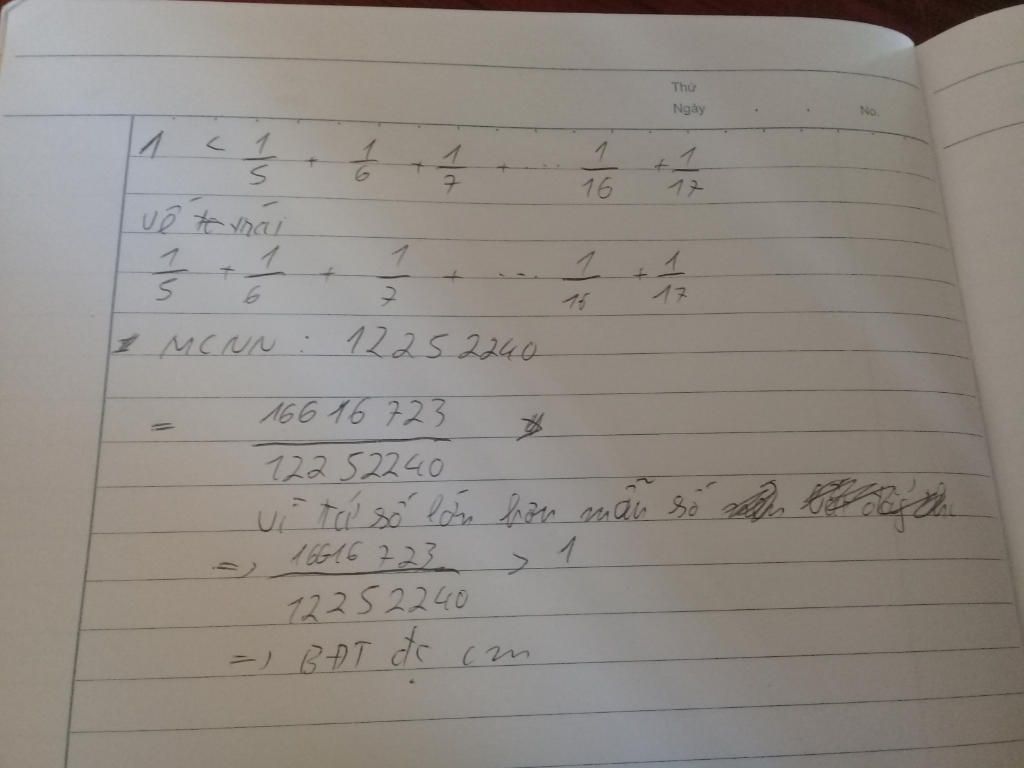 Thứ
Ngày . . No.
1 < 1/5 + 1/6 + 1/7 + ... 1/16 + 1/17
vế trái
1/5 + 1/6 + 1/7 + ... 1/16 + 1/17
MCNN : 12252240
= 16616723/12252240
vì tử số lớn hơn mẫu số
=> 16616723/12252240 > 1
=> BĐT đc cm